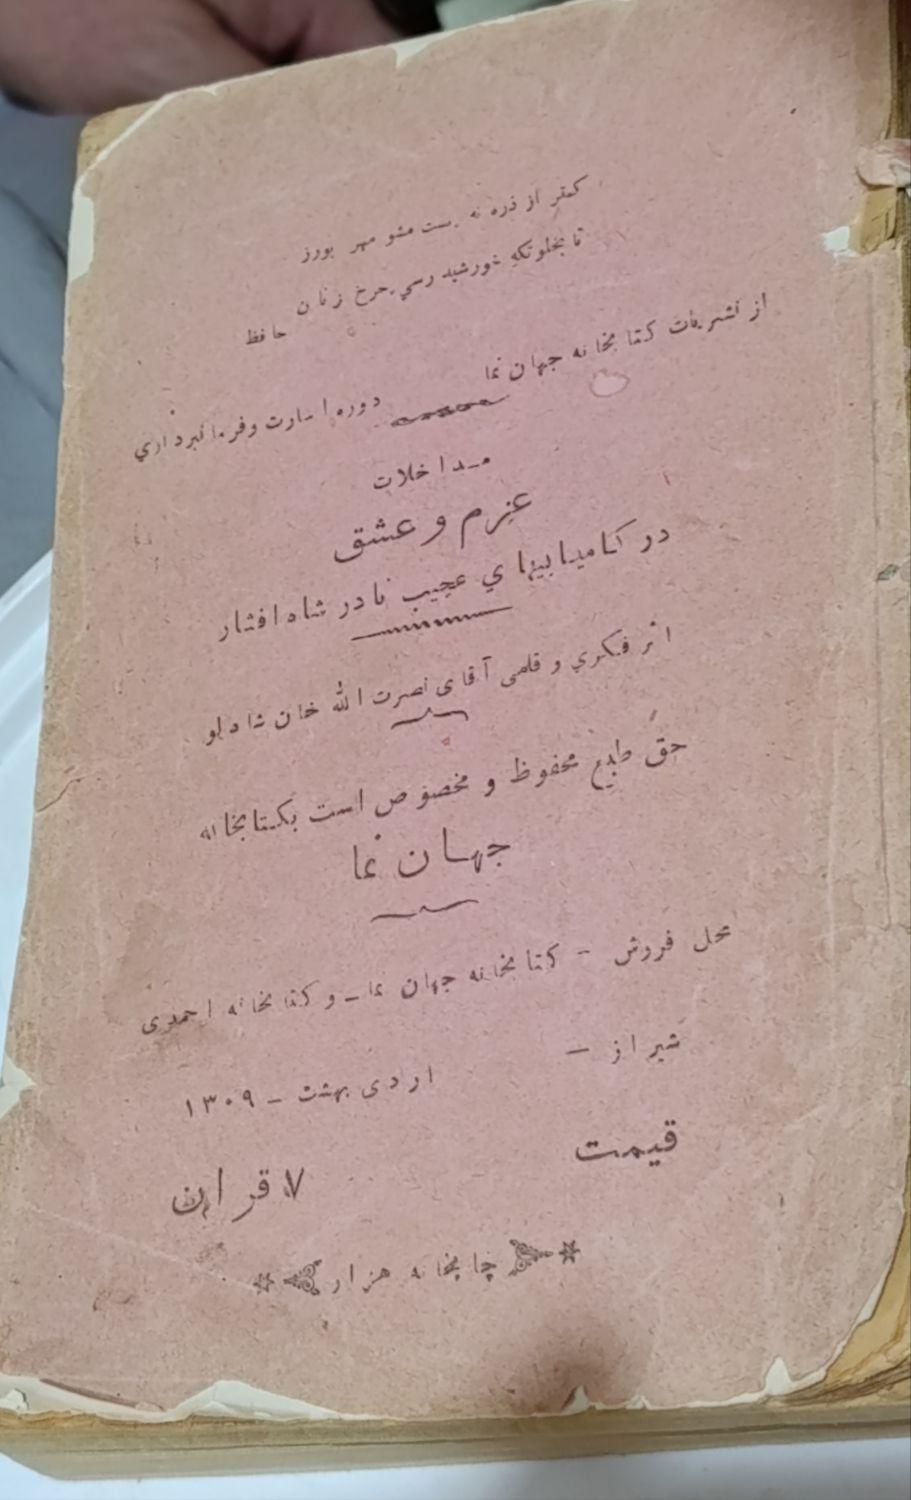 کمتر از ذره نه ‌پست مشو مهر بورز
تا بخلوتگه خورشید رسي چرخ زنان حافظ
از نشریات کتابخانه جهان نما
دوره اسارت وفرمانبرداري
مداخلات
عزم و عشق
در کامیابیهاي عجیب نادر شاه افشار
اثر فکري و قلمی آقای نصرت الله خان شادلو
حق طبع محفوظ و مخصوص است بکتابخانه
جهان نما
محل فروش - کتابخانه جهان نما - و کتابخانه احمدی
شیراز - اردی بهشت - ۱۳۰۹
قیمت ۷ قران
چابخانه هزار